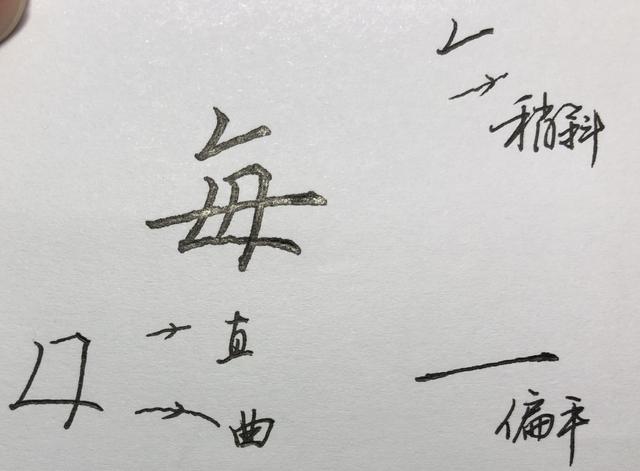 稍斜
每
直
曲
偏平